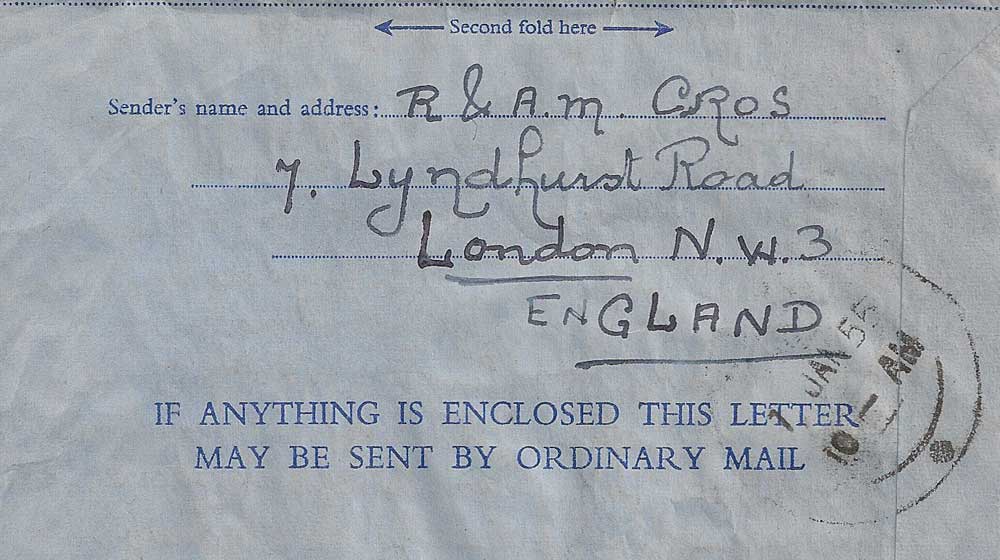 Second fold here
Sender's name and address: R & A.M. CROS
7. Lyndhurst Road
London N.W.3
ENGLAND
IF ANYTHING IS ENCLOSED THIS LETTER
MAY BE SENT BY ORDINARY MAIL
JAN 55
10 - AM